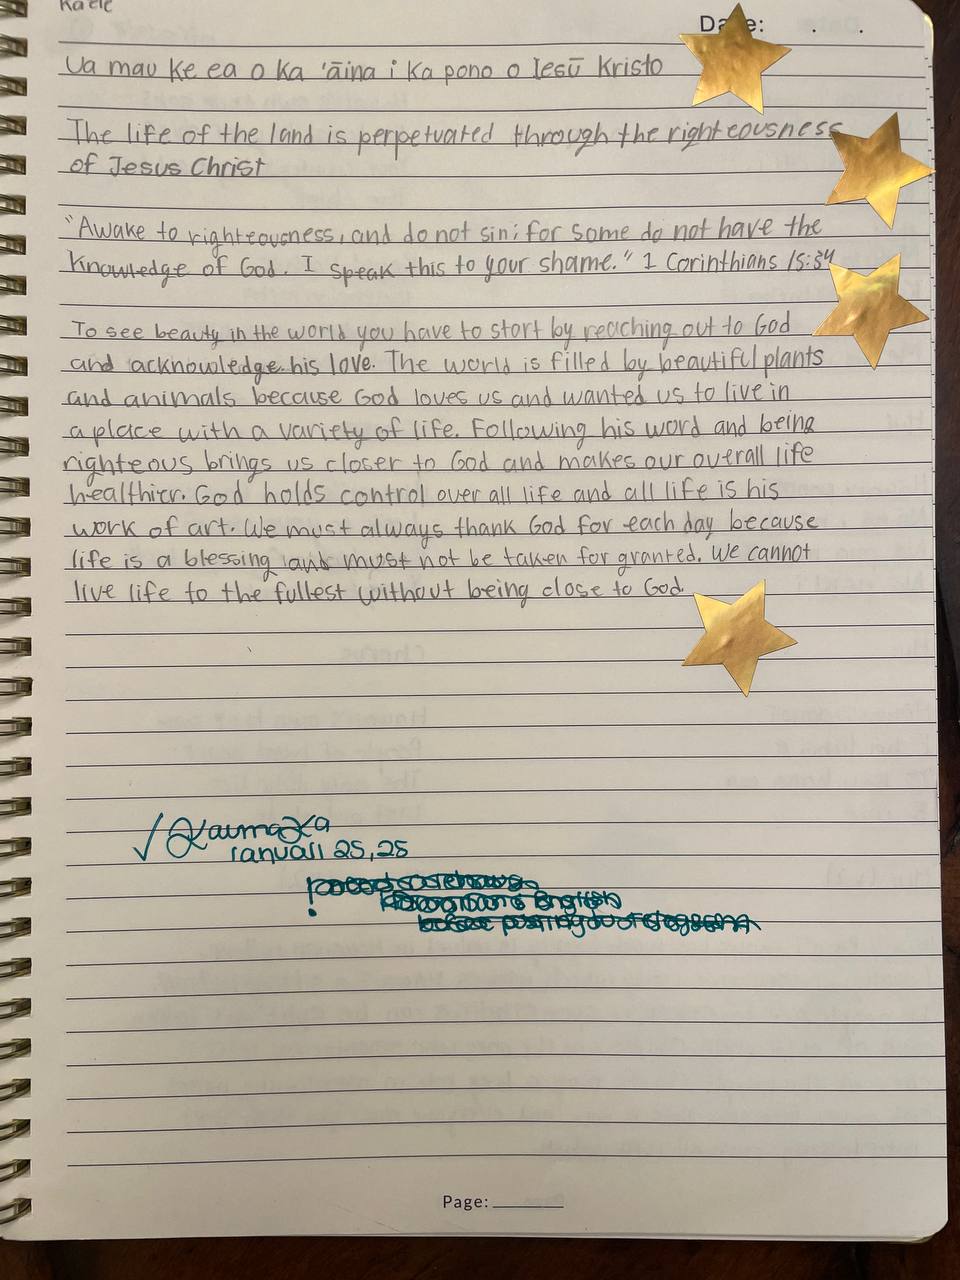 Kaele
Date: . .
Ua mau ke ea o ka 'āina i ka pono o Iesū Kristo
The life of the land is perpetuated through the righteousness
of Jesus Christ
"Awake to righteousness, and do not sin; for some do not have the
knowledge of God. I speak this to your shame." 1 Corinthians 15:34
To see beauty in the world you have to start by reaching out to God
and acknowledge his love. The world is filled by beautiful plants
and animals because God loves us and wanted us to live in
a place with a variety of life. Following his word and being
righteous brings us closer to God and makes our overall life
healthier. God holds control over all life and all life is his
work of art. We must always thank God for each day because
life is a blessing and must not be taken for granted. We cannot
live life to the fullest without being close to God.
ianuali 25, 25
English
Page: